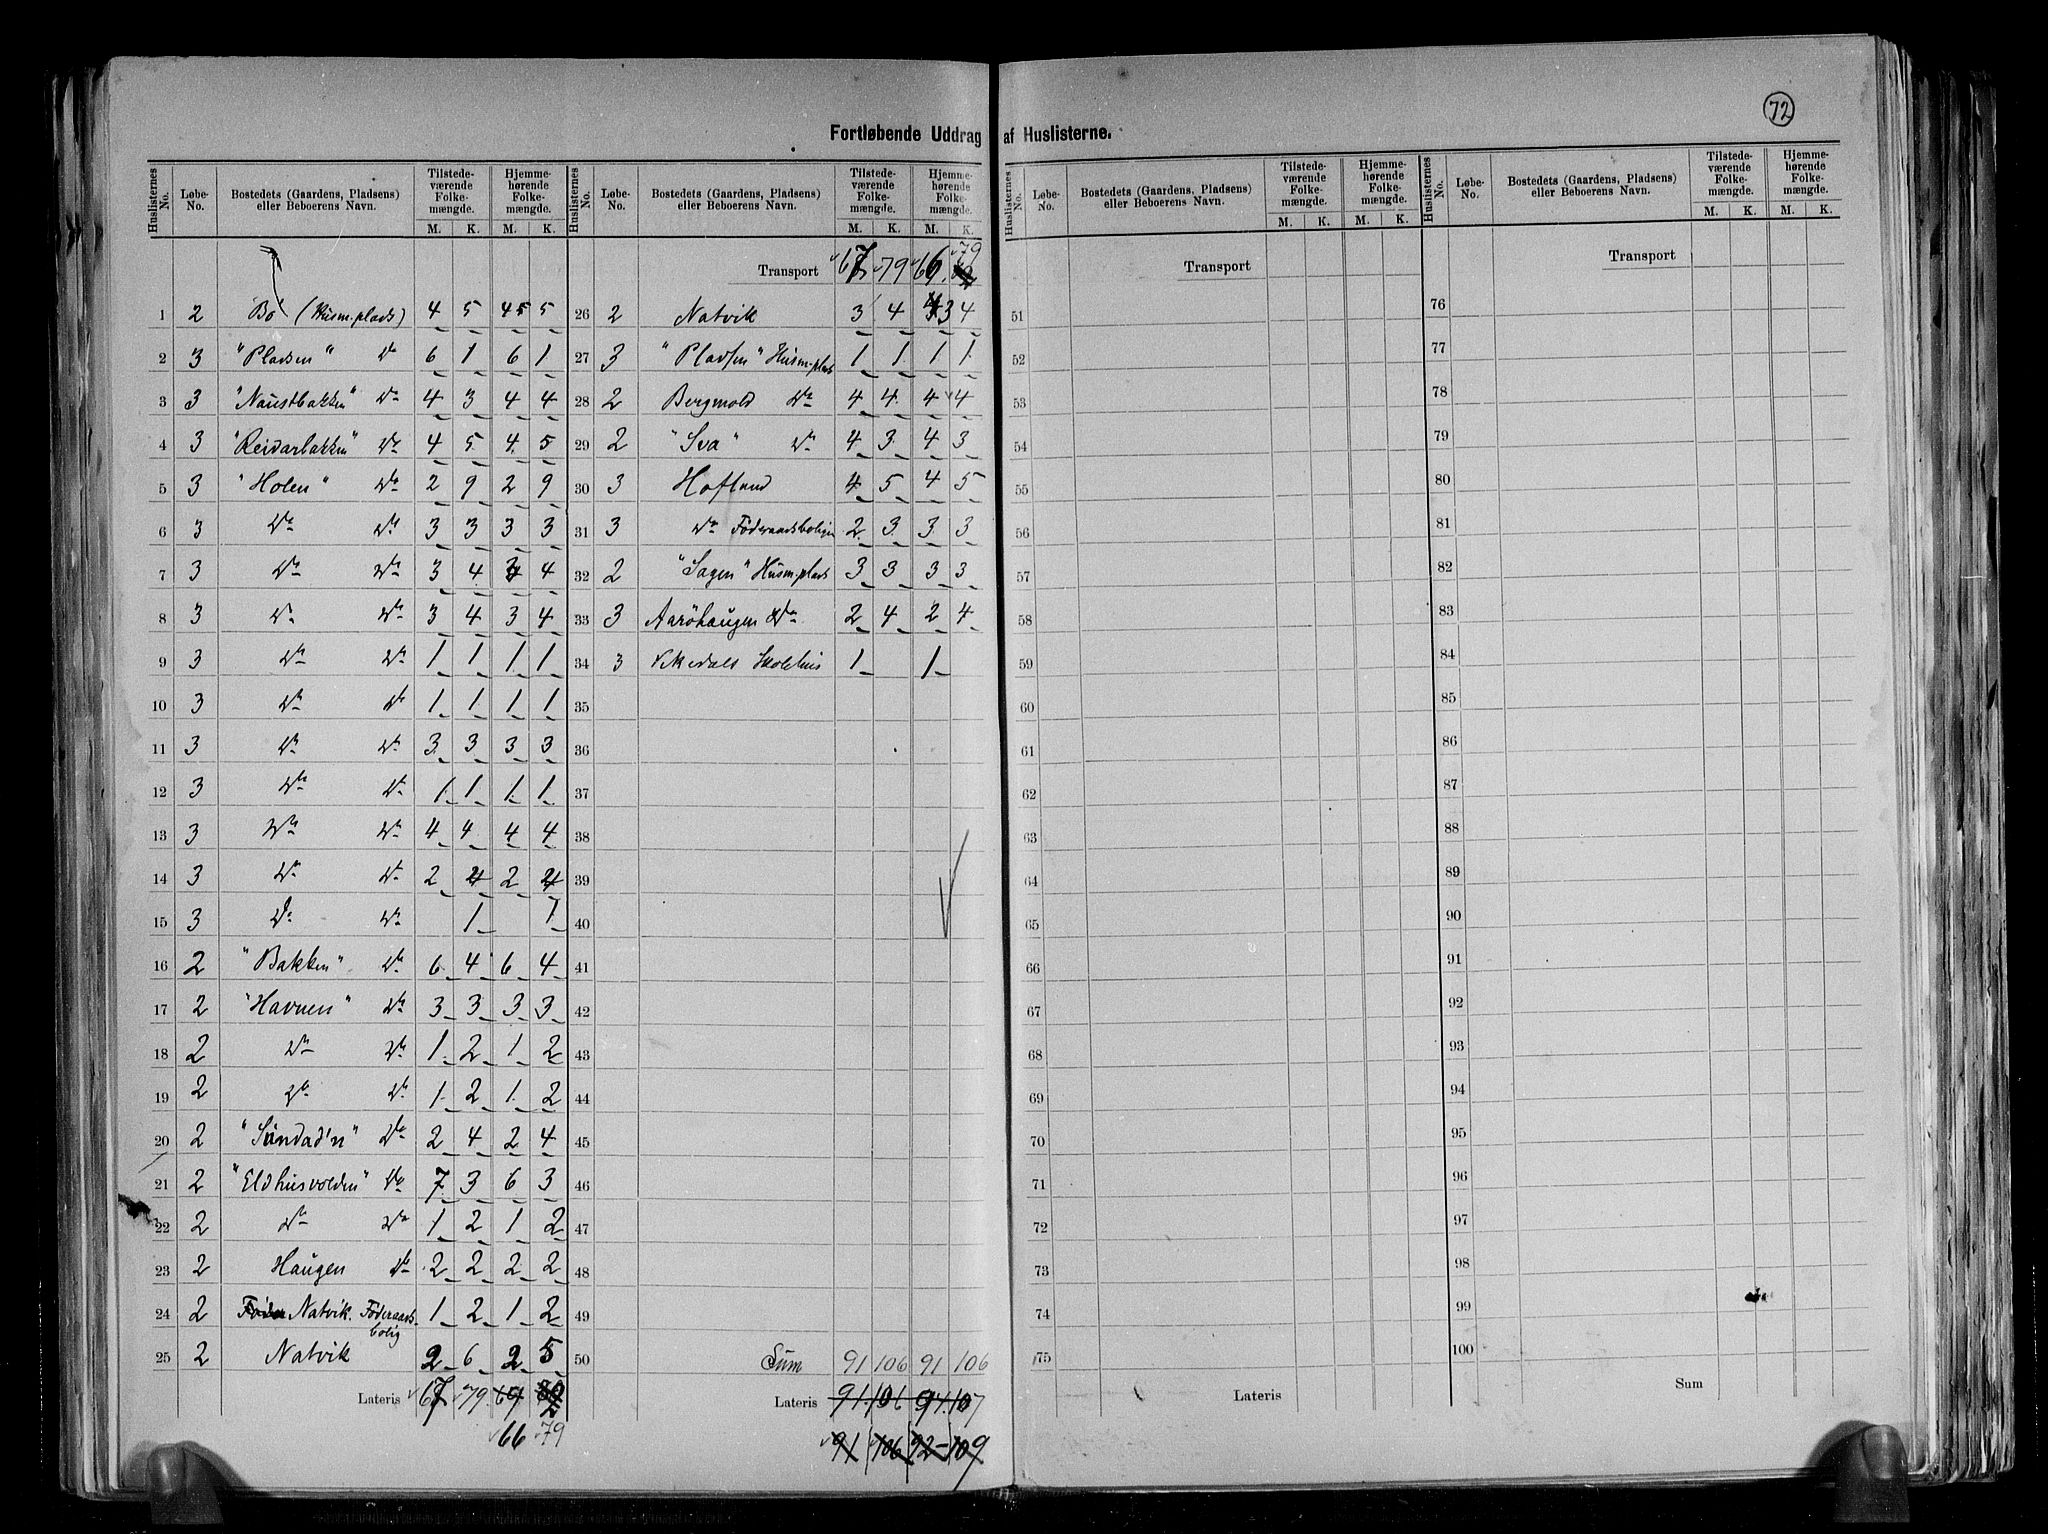 72
Fortløbende Uddrag af Huslisterne.
Huslisternes No. | Løbe-No. | Bostedets (Gaardens, Pladsens) eller Beboerens Navn. | Tilstedeværende Folkemængde. M. K. | Hjemmehørende Folkemængde. M. K.
1 2 Bö (Husm.plads) 4 5 4 5
2 3 "Pladsen" Do 6 1 6 1
3 3 "Naustbakken" Do 4 3 4 4
4 3 "Reidarbakken" Do 4 5 4 5
5 3 "Holen" Do 2 9 2 9
6 3 Do Do 3 3 3 3
7 3 Do Do 3 4 3 4
8 3 Do Do 3 4 3 4
9 3 Do Do 1 1 1 1
10 3 Do Do 1 1 1 1
11 3 Do Do 3 3 3 3
12 3 Do Do 1 1 1 1
13 3 Do Do 4 4 4 4
14 3 Do Do 2 4 2 4
15 3 Do Do 1 1
16 2 "Bakken" Do 6 4 6 4
17 2 "Havnen" Do 3 3 3 3
18 2 Do Do 1 2 1 2
19 2 Do Do 1 2 1 2
20 2 "Sundad'n" Do 2 4 2 4
21 2 "Eldhusvolden" Do 7 3 6 3
22 2 Do Do 1 2 1 2
23 2 Haugen Do 2 2 2 2
24 2 Natvik. Föderaadsbolig 1 2 1 2
25 2 Natvik 2 6 2 5
Lateris 67 79 69
66 79
Huslisternes No. | Løbe-No. | Bostedets (Gaardens, Pladsens) eller Beboerens Navn. | Tilstedeværende Folkemængde. M. K. | Hjemmehørende Folkemængde. M. K.
Transport 67 79 66 79
26 2 Natvik 3 4 3 4
27 3 "Pladsen" Husm.plads 1 1 1 1
28 2 Bergmold Do 4 4 4 4
29 2 "Sva" Do 4 3 4 3
30 3 Hofland 4 5 4 5
31 3 Do Föderaadsboligen 2 3 3 3
32 2 "Sagen" Husm.plads 3 3 3 3
33 3 Aaröhaugen Do 2 4 2 4
34 3 Vikedals Skolehus 1 1
35
36
37
38
39
40
41
42
43
44
45
46
47
48
49
50 Sum 91 106 91 106
Lateris 91 106 94 107
91 106 92 109
Huslisternes No. | Løbe-No. | Bostedets (Gaardens, Pladsens) eller Beboerens Navn. | Tilstedeværende Folkemængde. M. K. | Hjemmehørende Folkemængde. M. K.
Transport
51
52
53
54
55
56
57
58
59
60
61
62
63
64
65
66
67
68
69
70
71
72
73
74
75
Lateris
Huslisternes No. | Løbe-No. | Bostedets (Gaardens, Pladsens) eller Beboerens Navn. | Tilstedeværende Folkemængde. M. K. | Hjemmehørende Folkemængde. M. K.
Transport
76
77
78
79
80
81
82
83
84
85
86
87
88
89
90
91
92
93
94
95
96
97
98
99
100
Sum